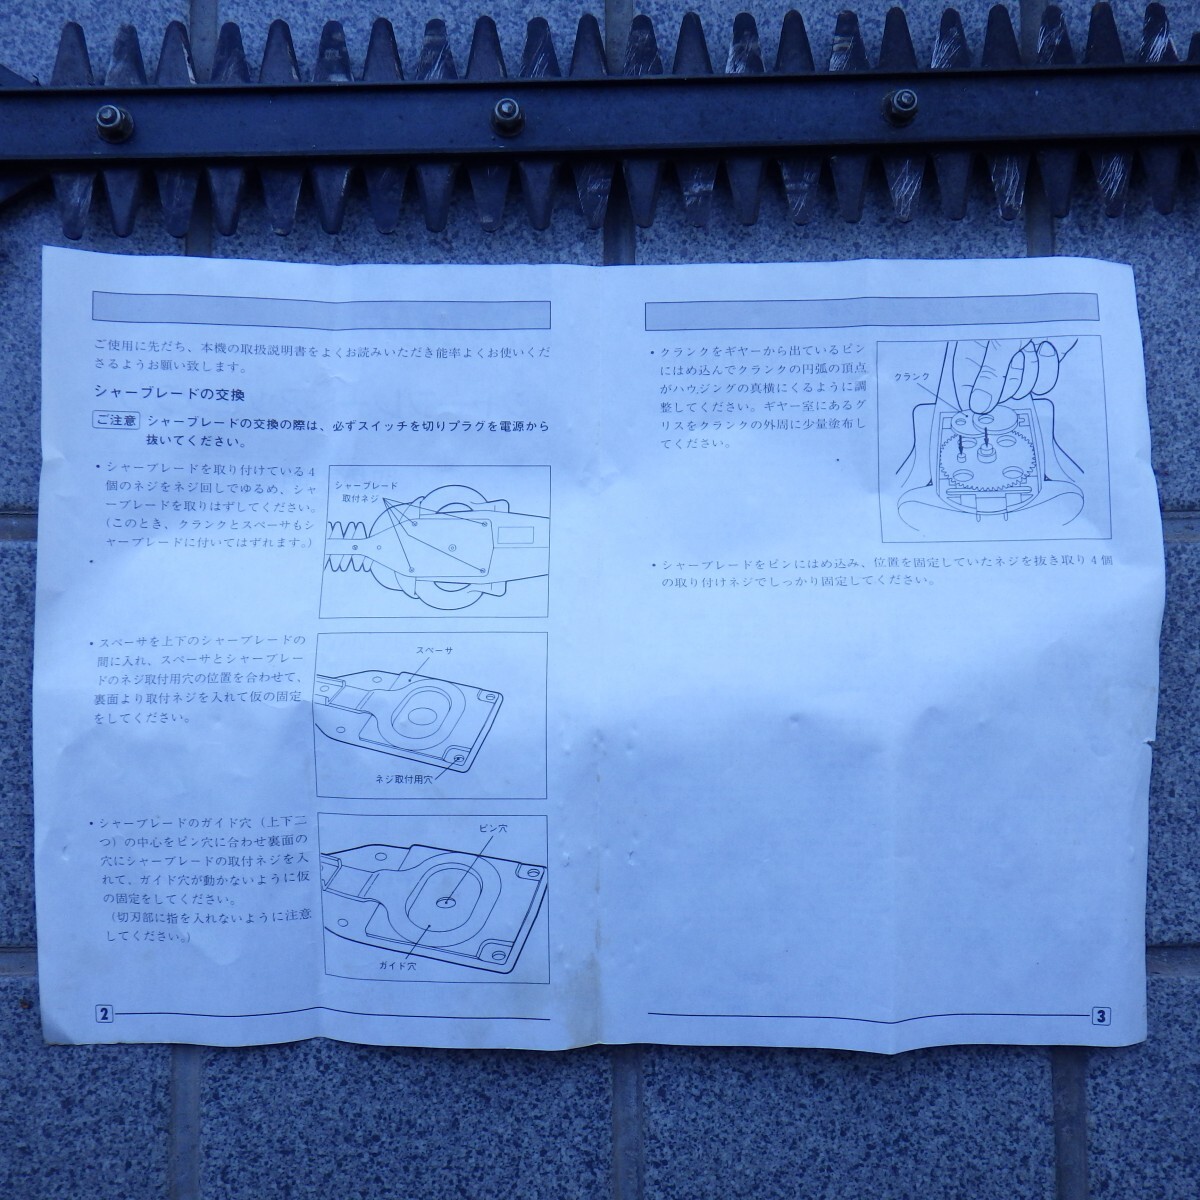 ご使用に先だち、本機の取扱説明書をよくお読みいただき能率よくお使いくだ
さるようお願い致します。
シャーブレードの交換
ご注意 シャーブレードの交換の際は、必ずスイッチを切りプラグを電源から
抜いてください。
・シャーブレードを取り付けている4
個のネジをネジ回しでゆるめ、シャ
ーブレードを取りはずしてください。
(このとき、クランクとスペーサもシ
ャーブレードに付いてはずれます。)
シャーブレード
取付ネジ
・スペーサを上下のシャーブレードの
間に入れ、スペーサとシャーブレー
ドのネジ取付用穴の位置を合わせて、
裏面より取付ネジを入れて仮の固定
をしてください。
スペーサ
ネジ取付用穴
・シャーブレードのガイド穴(上下二
つ)の中心をピン穴に合わせ裏面の
穴にシャーブレードの取付ネジを入
れて、ガイド穴が動かないように仮
の固定をしてください。
(切刃部に指を入れないように注意
してください。)
ピン穴
ガイド穴
2
・クランクをギヤーから出ているピン
にはめ込んでクランクの円弧の頂点
がハウジングの真横にくるように調
整してください。ギヤー室にあるグ
リスをクランクの外周に少量塗布し
てください。
クランク
・シャーブレードをピンにはめ込み、位置を固定していたネジを抜き取り4個
の取り付けネジでしっかり固定してください。
3